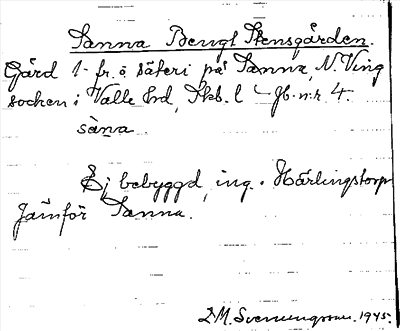 Sanna Bengt Stensgården.
Gård 1 fr. o säteri på Sanna, N. Ving
socken i Valle hd, Skb. l Jb. n:r 4.
sàna.
Ej bebyggd, ing. i Härlingstorp
Jämför Sanna.
D.M. Svenungsson. 1945.